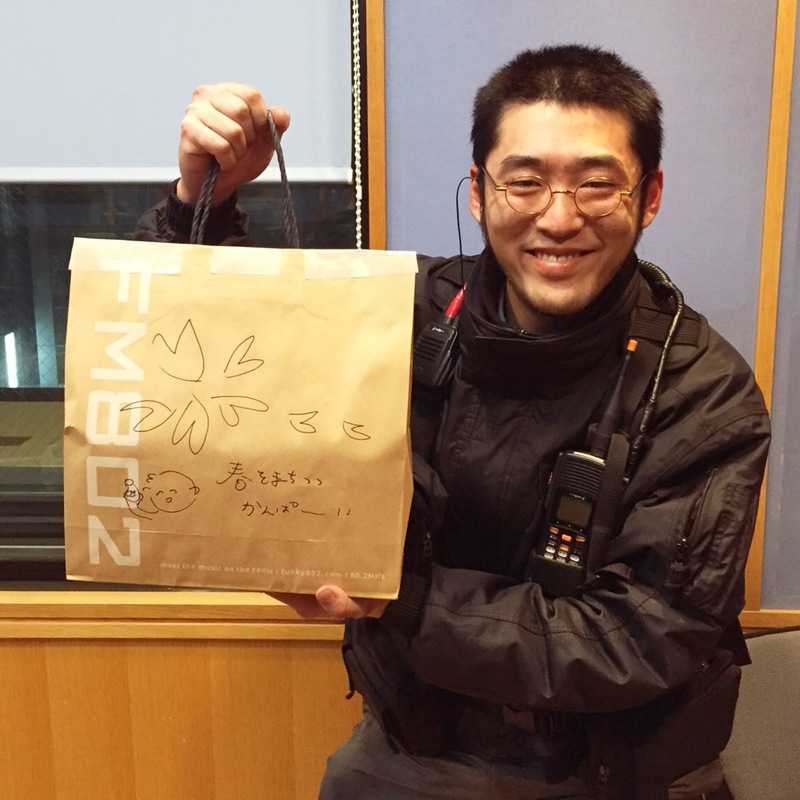 FM802
春をまちつつ
かんぱーい
meet the music on the radio : funky802.com : 80.2MHz